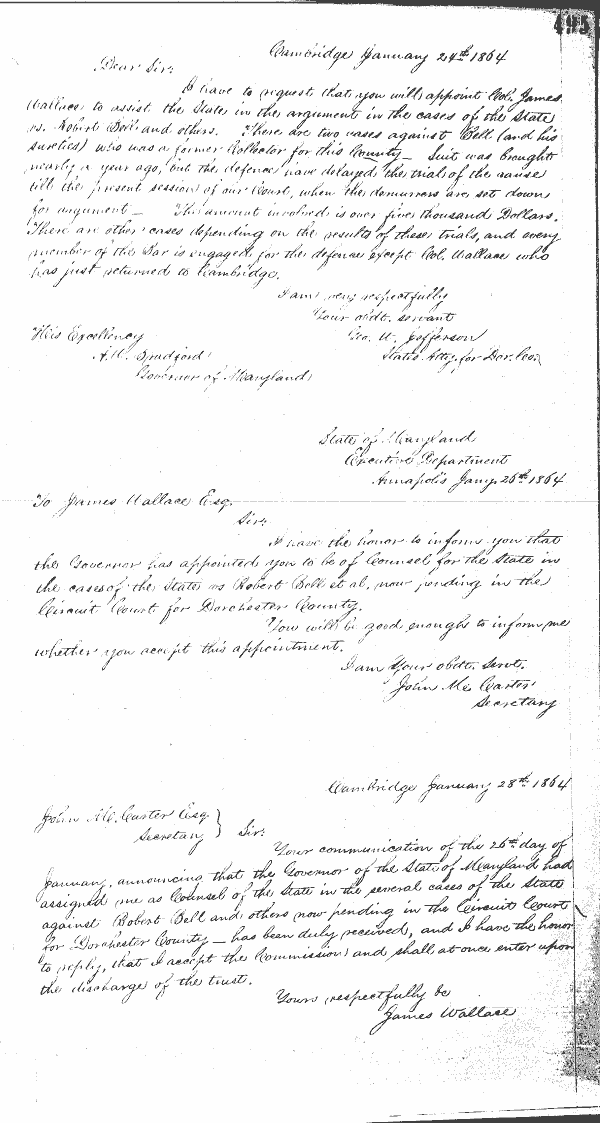 495
Cambridge January 24th 1864
Dear Sir:
I have to request that you will appoint Col. James
Wallace to assist the State in the argument in the cases of the State
vs. Robert Bell and others. There are two cases against Bell (and his
sureties) who was a former Collector for this County — Suit was brought
nearly a year ago, but the defence have delayed the trial of the cause
till the present session of our Court, when the demurrers are set down
for argument — The amount involved is over five thousand Dollars.
There are other cases depending on the results of these trials, and every
member of the Bar is engaged for the defense except Col. Wallace who
has just returned to Cambridge.
I am very respectfully
Your obdt. servant
His Excellency
Geo. W. Jefferson
A. W. Bradford
States Atty. for Dor. Co.
Governor of Maryland
State of Maryland
Executive Department
Annapolis Jany. 26th 1864
To James Wallace Esq.
Sir:
I have the honor to inform you that
the Governor has appointed you to be of Counsel for the State in
the cases of the State vs Robert Bell et al, now pending in the
Circuit Court for Dorchester County.
You will be good enough to inform me
whether you accept this appointment.
I am Your obdt. Servt.
John M. Carter
Secretary
Cambridge January 28th 1864
John M. Carter Esq
Secretary } Sir:
Your communication of the 26th day of
January, announcing that the Governor of the State of Maryland had
assigned me as Counsel of the State in the several cases of the State
against Robert Bell and others now pending in the Circuit Court
for Dorchester County — has been duly received, and I have the honor
to reply, that I accept the Commission and shall at once enter upon
the discharge of the trust.
Yours respectfully &c
James Wallace